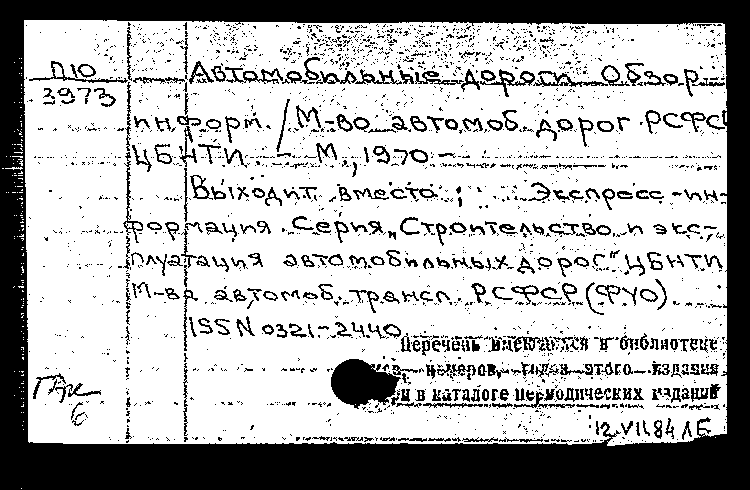 П10
3973
Автомобильные дороги. Обзор-
информ. / М-во автомоб. дорог РСФСР
ЦБНТИ. - М., 1970-
Выходит вместо: Экспресс-ин-
формация. Серия „Строительство и экс-
плуатация автомобильных дорог" ЦБНТИ
М-ва автомоб. трансп. РСФСР (ФУО).
ISSN 0321-2440
Перечень имеющихся в библиотеке
номеров, годов этого издания
в каталоге периодических изданий
6
12.VII.84 ЛБ